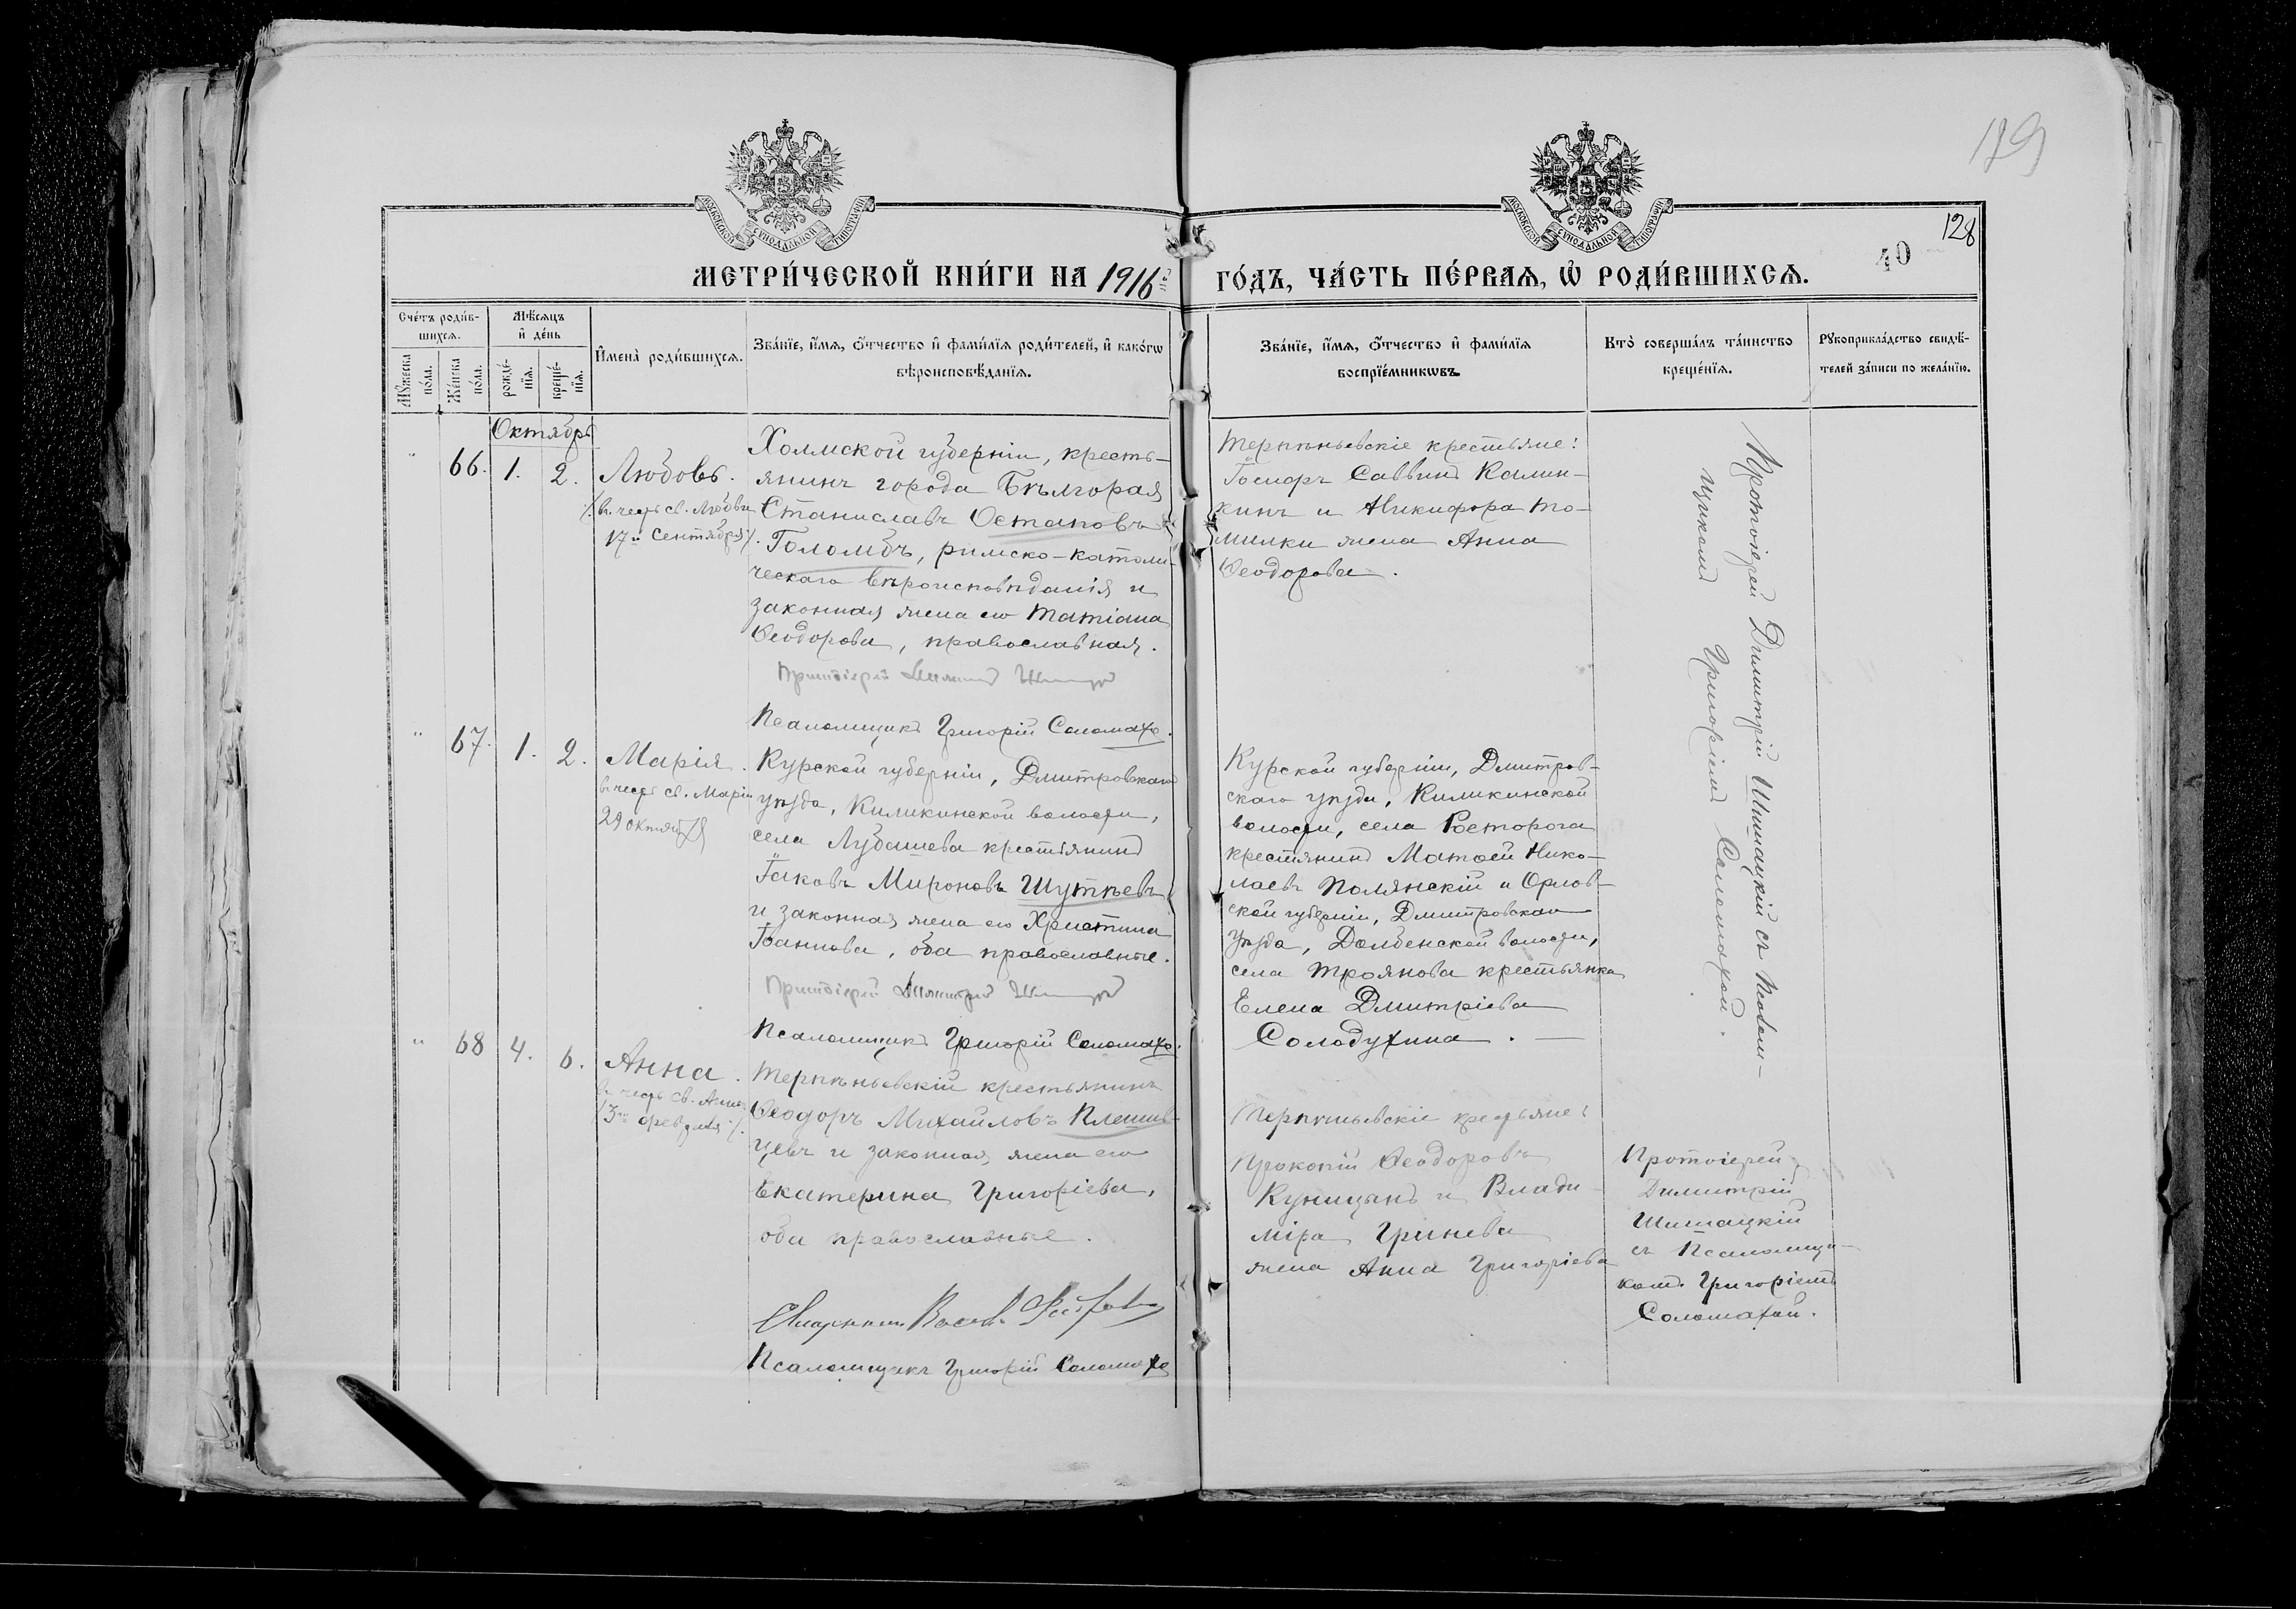 129
128
40
МОСКОВСКОЙ СѴНОДАЛЬНОЙ ТИПОГРАФІИ
МОСКОВСКОЙ СѴНОДАЛЬНОЙ ТИПОГРАФІИ
МЕТРИ́ЧЕСКОЙ КНИ́ГИ НА 1916 ГО́ДЪ, ЧА́СТЬ ПЕ́РВАЯ, Ѡ҆ РОДИ́ВШИХСЯ.
Сче́тъ роди́в-
шихся.
Мꙋ́жеска
по́ла.
Же́нска
по́ла.
Мѣ́сяцъ
и҆ де́нь
рожде́-
нїя.
креще́-
нїя.
И҆мена̀ роди́вшихся.
Зва́нїе, и҆́мя, ѻ҆́тчество и҆ фами́лїя роди́телей, и҆ како́гѡ
вѣроисповѣ́данїя.
Зва́нїе, и҆́мя, ѻ҆́тчество и҆ фами́лїя
воспрїе́мникѡвъ
Кто̀ соверша́лъ та́инство
креще́нїя.
Рꙋкоприкла́дство свидѣ́-
телей за́писи по жела́нїю.
Октябрь
" 66. 1. 2.
Любовь.
/въ честь св. Любви
17го Сентября/.
Холмской губерніи, кресть-
янинъ города Бѣлгорая
Станиславъ Остаповъ
Голомбъ, римско-католи-
ческаго вѣроисповѣданія и
законная жена его Татіана
Ѳеодорова, православная.
Протоіерей Димитрій
Псаломщикъ Григорій Соломаха.
Терпѣньевскіе крестьяне:
Іосифъ Саввинъ Калин-
кинъ и Никифора То-
милки жена Анна
Ѳеодорова.
Протоіерей Димитрій Шишацкій съ Псалом-
щикомъ Григоріемъ Соломахой.
" 67. 1. 2.
Марія.
въ честь св. Маріи
29 октября
Курской губерніи, Дмитровскаго
уѣзда, Киликинской волости,
села Лубашева крестьянинъ
Іаковъ Мироновъ Шутѣевъ
и законная жена его Христина
Іоаннова, оба православные.
Протоіерей Димитрій
Псаломщикъ Григорій Соломаха.
Курской губерніи, Дмитров-
скаго уѣзда, Киликинской
волости, села Расторога
крестьянинъ Матѳей Нико-
лаевъ Полянскій и Орлов-
ской губерніи, Дмитровскаго
уѣзда, Долбенской волости,
села Троянова крестьянка
Елена Дмитріева
Солодухина.
" 68 4. 6.
Анна.
въ честь св. Анны
3го февраля/.
Терпѣньевскій крестьянинъ
Ѳеодоръ Михайловъ Плешив-
цевъ и законная жена его
Екатерина Григоріева,
оба православные.
Псаломщикъ Григорій Соломаха
Терпѣньевскіе крестьяне:
Прокопій Ѳеодоровъ
Куницынъ и Влади-
міра Гринева
жена Анна Григоріева
Протоіерей
Димитрій
Шишацкій
съ Псаломщи-
комъ Григоріемъ
Соломахой.